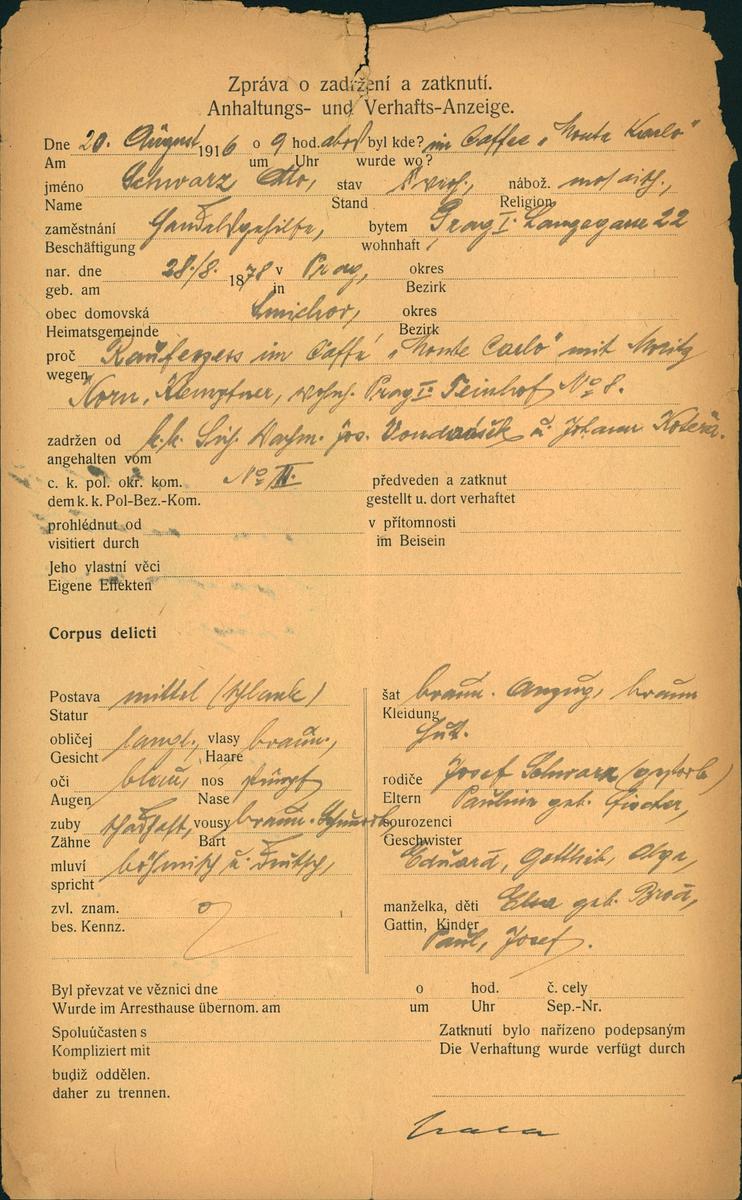 Zpráva o zadržení a zatknutí.
Anhaltungs- und Verhafts-Anzeige.
Dne 20. August 1916 o 9 hod. abds byl kde? im Caffee „Monte Karlo"
Am um Uhr wurde wo?
jméno Schwarz Otto, stav verh., nábož. mosaisch,
Name Stand Religion
zaměstnání Handelsgehilfe, bytem Prag I. Langegasse 22
Beschäftigung wohnhaft
nar. dne 28./8. 1878 v Prag, okres
geb. am in Bezirk
obec domovská Smichov, okres
Heimatsgemeinde Bezirk
proč Raufexzess im Caffé „Monte Carlo" mit Moritz
wegen
Korn, Klemptner, wohnh. Prag I. Teinhof No 8.
zadržen od k. k. Sich. Wachm. Jos. u. Johann
angehalten vom
c. k. pol. okr. kom. No II. předveden a zatknut
dem k. k. Pol-Bez.-Kom. gestellt u. dort verhaftet
prohlédnut od v přítomnosti
visitiert durch im Beisein
Jeho vlastní věci
Eigene Effekten
Corpus delicti
Postava mittel (schlank)
Statur
obličej langl., vlasy braun,
Gesicht Haare
oči blau, nos stumpf
Augen Nase
zuby schadhaft, vousy braun. Schnurrb.
Zähne Bart
mluví böhmisch u. deutsch,
spricht
zvl. znam.
bes. Kennz.
šat braun. Anzug, braun
Kleidung
Hut.
rodiče Josef Schwarz (gestorb)
Eltern Paulina geb. Fischer,
sourozenci
Geschwister
Eduard, Gottlieb, Olga,
manželka, děti Elsa geb. Brod,
Gattin, Kinder
Paul, Josef.
Byl převzat ve věznici dne o hod. č. cely
Wurde im Arresthause übernom. am um Uhr Sep.-Nr.
Spoluúčasten s Zatknutí bylo nařízeno podepsaným
Kompliziert mit Die Verhaftung wurde verfügt durch
budiž oddělen.
daher zu trennen.